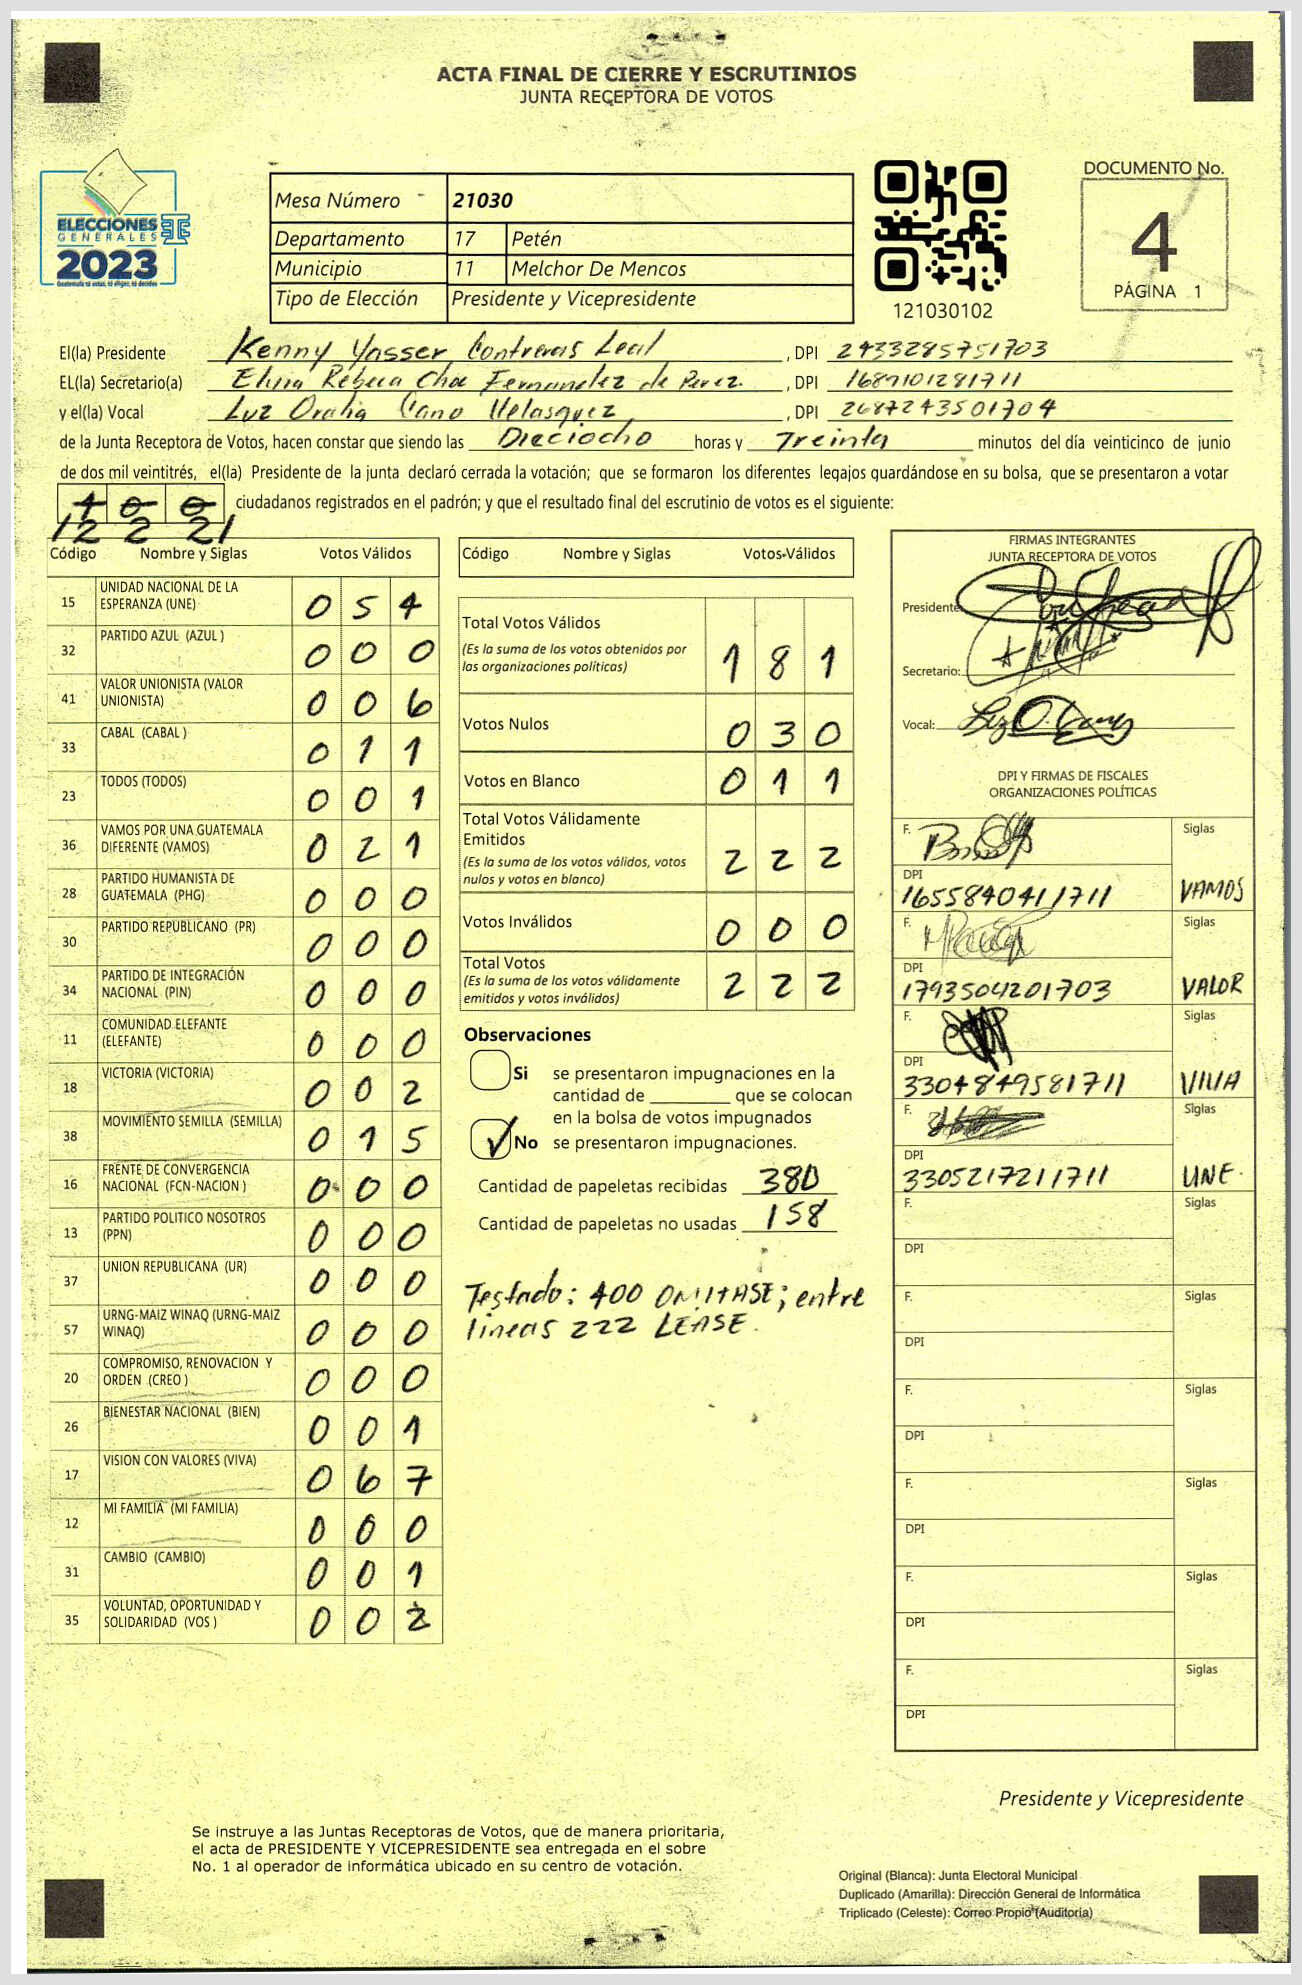 ACTA FINAL DE CIERRE Y ESCRUTINIOS
JUNTA RECEPTORA DE VOTOS
ELECCIONES
GENERALES
2023
Guatemala tú votas, tú eliges, tú decides
Mesa Número 21030
Departamento 17 Petén
Municipio 11 Melchor De Mencos
Tipo de Elección Presidente y Vicepresidente
121030102
DOCUMENTO No.
4
PÁGINA 1
El(la) Presidente Kenny Yasser Contreras Leal , DPI 2433285751703
EL(la) Secretario(a) Elina Rebeca Choc Fernandez de Perez. , DPI 1687101281711
y el(la) Vocal Luz Oralia Cano Velasquez , DPI 2687243501704
de la Junta Receptora de Votos, hacen constar que siendo las Dieciocho horas y Treinta minutos del día veinticinco de junio
de dos mil veintitrés, el(la) Presidente de la junta declaró cerrada la votación; que se formaron los diferentes legajos guardándose en su bolsa, que se presentaron a votar
400 ciudadanos registrados en el padrón; y que el resultado final del escrutinio de votos es el siguiente:
Código Nombre y Siglas Votos Válidos
15 UNIDAD NACIONAL DE LA ESPERANZA (UNE) 0 5 4
32 PARTIDO AZUL (AZUL ) 0 0 0
41 VALOR UNIONISTA (VALOR UNIONISTA) 0 0 6
33 CABAL (CABAL ) 0 1 1
23 TODOS (TODOS) 0 0 1
36 VAMOS POR UNA GUATEMALA DIFERENTE (VAMOS) 0 2 1
28 PARTIDO HUMANISTA DE GUATEMALA (PHG) 0 0 0
30 PARTIDO REPUBLICANO (PR) 0 0 0
34 PARTIDO DE INTEGRACIÓN NACIONAL (PIN) 0 0 0
11 COMUNIDAD ELEFANTE (ELEFANTE) 0 0 0
18 VICTORIA (VICTORIA) 0 0 2
38 MOVIMIENTO SEMILLA (SEMILLA) 0 1 5
16 FRENTE DE CONVERGENCIA NACIONAL (FCN-NACION ) 0 0 0
13 PARTIDO POLITICO NOSOTROS (PPN) 0 0 0
37 UNION REPUBLICANA (UR) 0 0 0
57 URNG-MAIZ WINAQ (URNG-MAIZ WINAQ) 0 0 0
20 COMPROMISO, RENOVACION Y ORDEN (CREO ) 0 0 0
26 BIENESTAR NACIONAL (BIEN) 0 0 1
17 VISION CON VALORES (VIVA) 0 6 7
12 MI FAMILIA (MI FAMILIA) 0 0 0
31 CAMBIO (CAMBIO) 0 0 1
35 VOLUNTAD, OPORTUNIDAD Y SOLIDARIDAD (VOS ) 0 0 2
Código Nombre y Siglas Votos Válidos
Total Votos Válidos 1 8 1
(Es la suma de los votos obtenidos por
las organizaciones políticas)
Votos Nulos 0 3 0
Votos en Blanco 0 1 1
Total Votos Válidamente
Emitidos 2 2 2
(Es la suma de los votos válidos, votos
nulos y votos en blanco)
Votos Inválidos 0 0 0
Total Votos 2 2 2
(Es la suma de los votos válidamente
emitidos y votos inválidos)
Observaciones
Si se presentaron impugnaciones en la
cantidad de ________ que se colocan
en la bolsa de votos impugnados
No se presentaron impugnaciones.
Cantidad de papeletas recibidas 380
Cantidad de papeletas no usadas 158
Testado: 400 OMITASE; entre
lineas 222 LEASE.
FIRMAS INTEGRANTES
JUNTA RECEPTORA DE VOTOS
Presidente:
Secretario:
Vocal:
DPI Y FIRMAS DE FISCALES
ORGANIZACIONES POLÍTICAS
F. Siglas
DPI
1655840411711 VAMOS
F. Siglas
DPI
1793504201703 VALOR
F. Siglas
DPI
3304849581711 VIVA
F. Siglas
DPI
3305217211711 UNE.
F. Siglas
DPI
F. Siglas
DPI
F. Siglas
DPI
F. Siglas
DPI
F. Siglas
DPI
F. Siglas
DPI
Presidente y Vicepresidente
Se instruye a las Juntas Receptoras de Votos, que de manera prioritaria,
el acta de PRESIDENTE Y VICEPRESIDENTE sea entregada en el sobre
No. 1 al operador de informática ubicado en su centro de votación.
Original (Blanca): Junta Electoral Municipal
Duplicado (Amarilla): Dirección General de Informática
Triplicado (Celeste): Correo Propio (Auditoría)